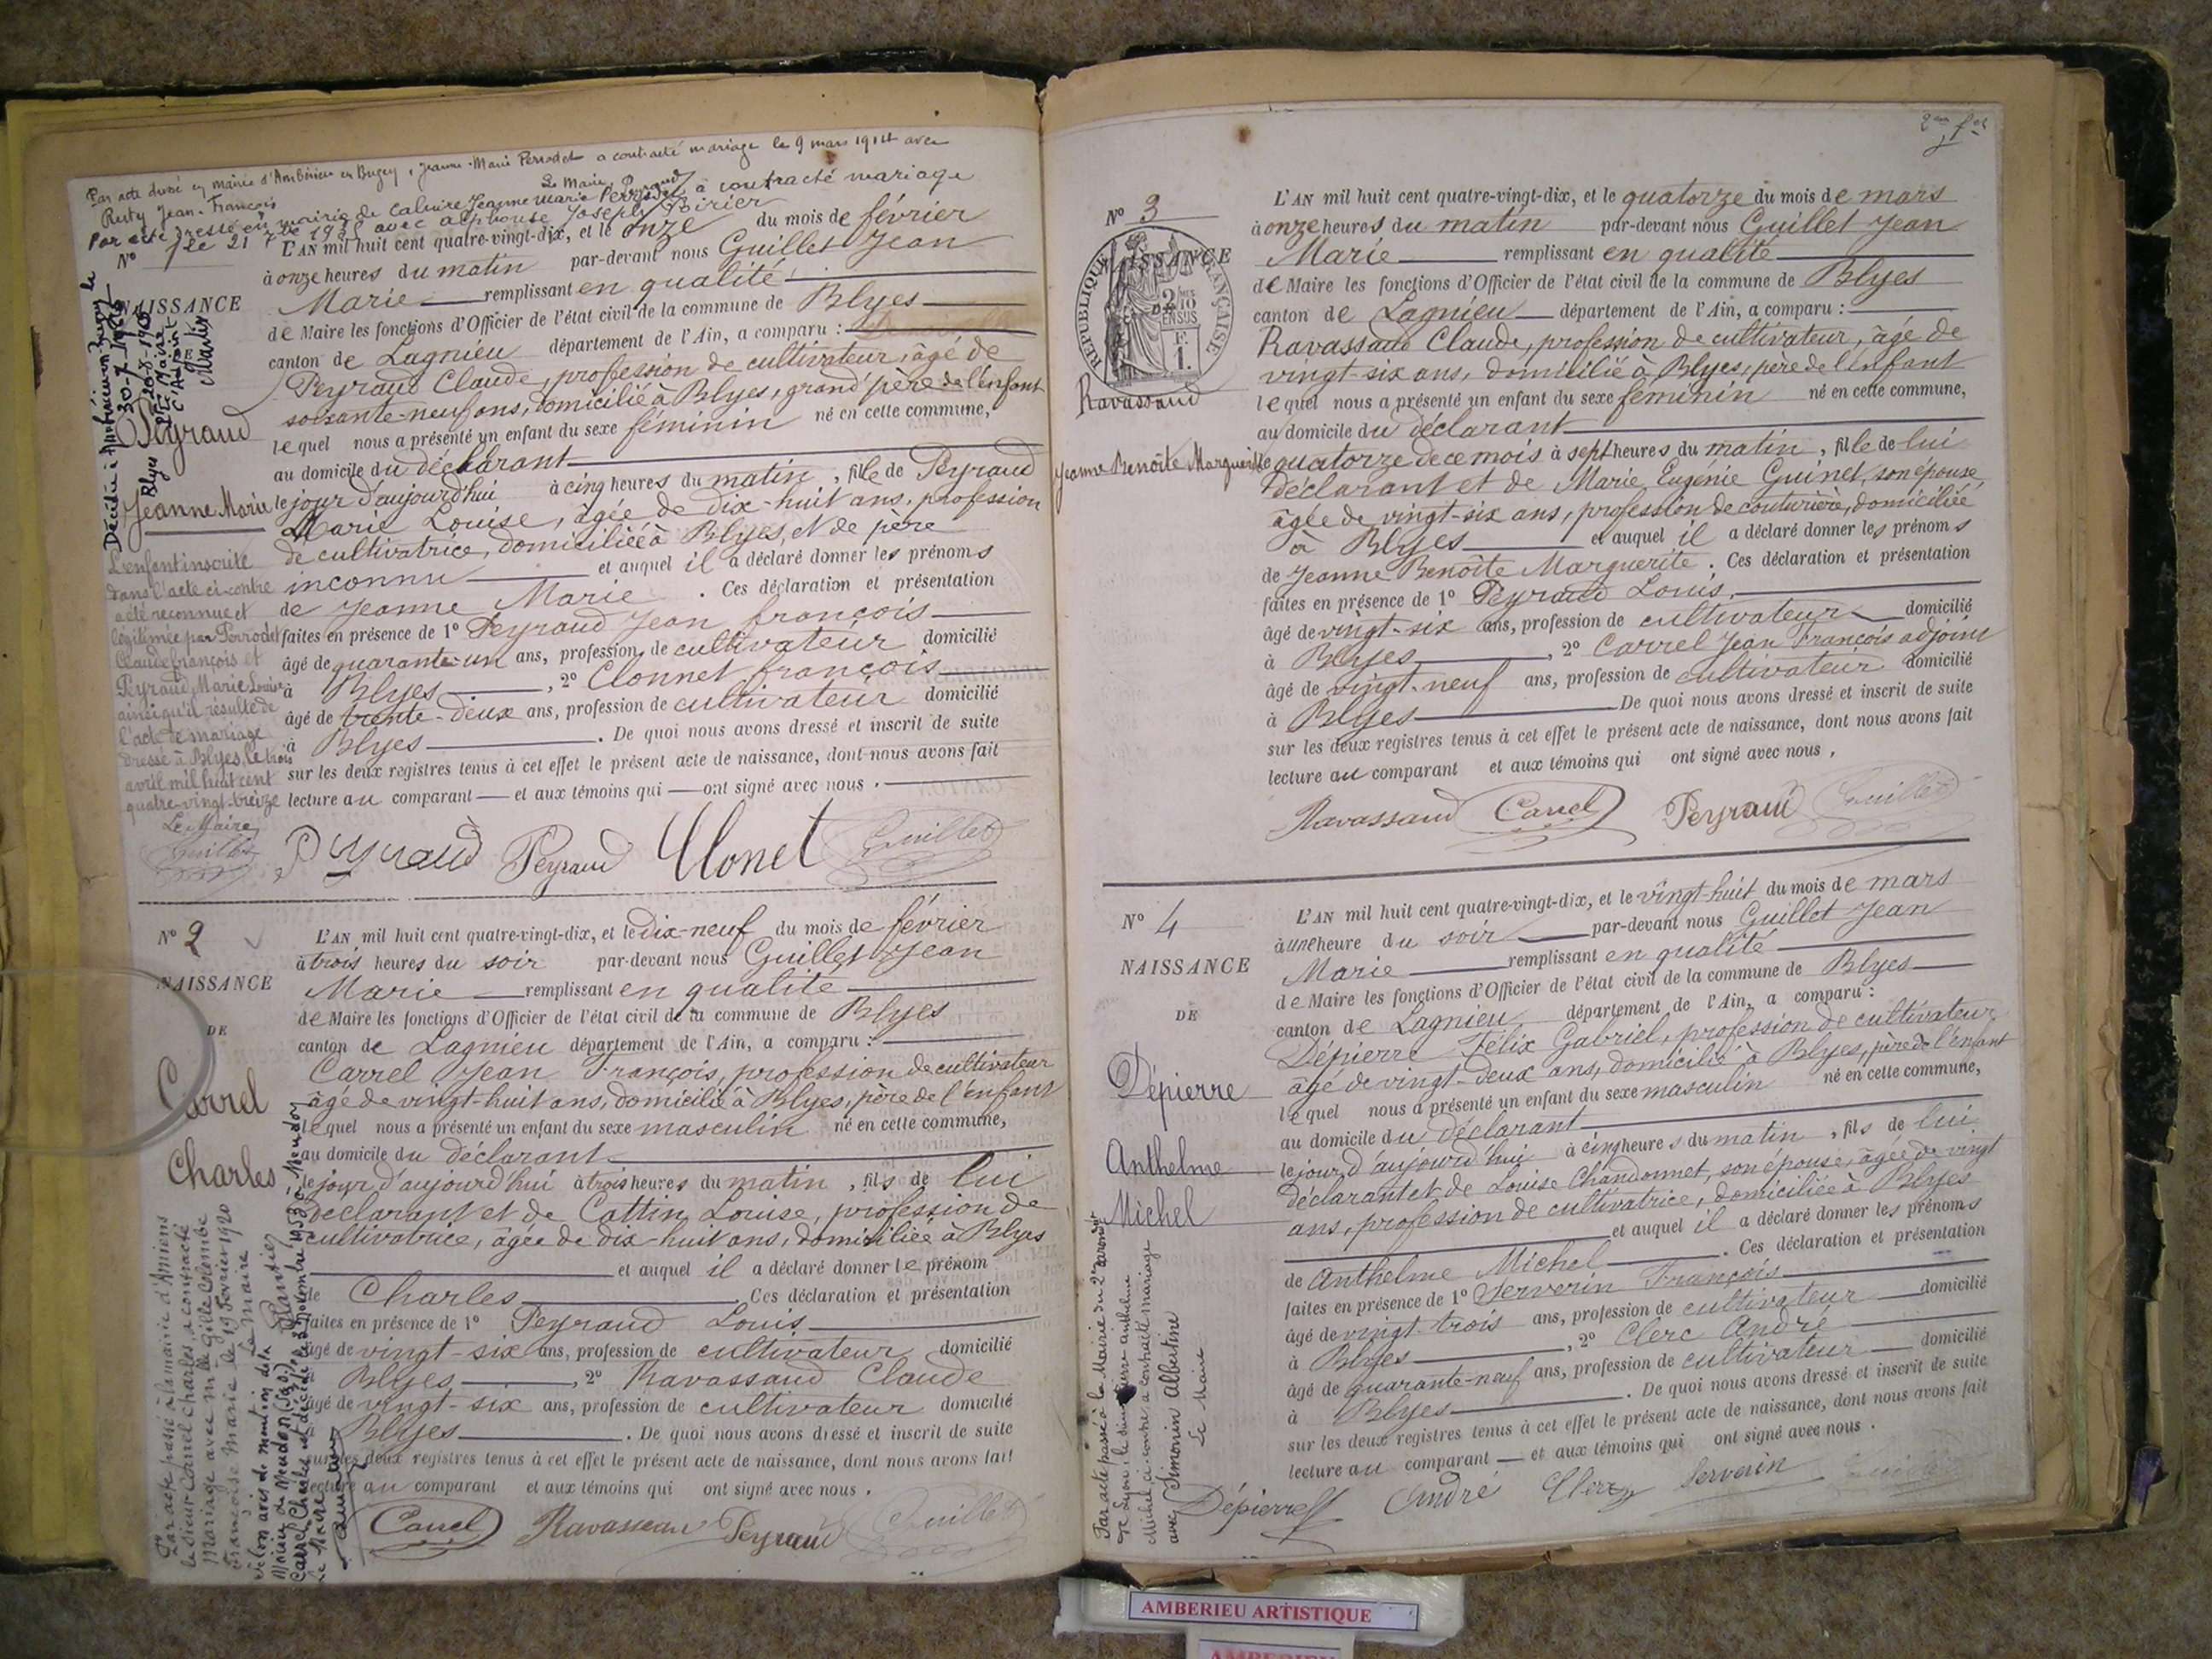 Par acte dressé en mairie d'Ambérieu en Bugey, Jeanne-Marie Perrodet a contracté mariage le 9 mars 1914 avec
Rusty Jean-François
Le Maire,
Par acte dressé en mairie de Caluire Jeanne Marie Perrodet a contracté mariage
le 21 1935 avec Alphonse Joseph Poirier
N° 1
NAISSANCE
DE
Peyraud
Jeanne Marie
Décédée à Ambérieu en Bugey le
30-7-1969
Blyes le 20-8-1969
Le Maire
L'Adjoint
L'enfant inscrite
dans l'acte ci-contre
a été reconnue et
légitimée par Perrodet
Claude françois et
Peyraud Marie Louise
ainsi qu'il résulte de
l'acte de mariage
dressé à Blyes, le trois
avril mil huit cent
quatre-vingt-treize
Le Maire,
Guillet
L'AN mil huit cent quatre-vingt-dix, et le onze du mois de février
à onze heures du matin par-devant nous Guillet Jean
Marie remplissant en qualité
de Maire les fonctions d'Officier de l'état civil de la commune de Blyes
canton de Lagnieu département de l'Ain, a comparu :
Peyraud Claude, profession de cultivateur, âgé de
soixante-neuf ans, domicilié à Blyes, grand'père de l'enfant
lequel nous a présenté un enfant du sexe féminin né en cette commune,
au domicile du déclarant
le jour d'aujourd'hui à cinq heures du matin, fille de Peyraud
Marie Louise, âgée de dix-huit ans, profession
de cultivatrice, domiciliée à Blyes, et de père
inconnu et auquel il a déclaré donner les prénoms
de Jeanne Marie. Ces déclaration et présentation
faites en présence de 1° Peyraud Jean françois
âgé de quarante-un ans, profession de cultivateur domicilié
à Blyes, 2° Clonnet françois
âgé de trente-deux ans, profession de cultivateur domicilié
à Blyes. De quoi nous avons dressé et inscrit de suite
sur les deux registres tenus à cet effet le présent acte de naissance, dont nous avons fait
lecture au comparant et aux témoins qui ont signé avec nous.
Peyraud Peyraud Clonet Guillet
N° 2
NAISSANCE
DE
Carrel
Charles
Par acte passé à la mairie d'Amiens
le sieur Carrel Charles, a contracté
mariage avec mlle Gille Colombe
Françoise Marie le 19 Février 1920
Le Maire
Selon avis de mention de la
Mairie de Meudon (S&O)
Carrel Charles est décédé à Meudon
Le Maire
L'AN mil huit cent quatre-vingt-dix, et le dix-neuf du mois de février
à trois heures du soir par-devant nous Guillet Jean
Marie remplissant en qualité
de Maire les fonctions d'Officier de l'état civil de la commune de Blyes
canton de Lagnieu département de l'Ain, a comparu :
Carrel Jean François, profession de cultivateur
âgé de vingt-huit ans, domicilié à Blyes, père de l'enfant
lequel nous a présenté un enfant du sexe masculin né en cette commune,
au domicile du déclarant
le jour d'aujourd'hui à trois heures du matin, fils de lui
déclarant et de Cottin Louise, profession de
cultivatrice, âgée de dix-huit ans, domiciliée à Blyes
et auquel il a déclaré donner le prénom
de Charles. Ces déclaration et présentation
faites en présence de 1° Peyraud Louis
âgé de vingt-six ans, profession de cultivateur domicilié
Blyes, 2° Ravassaud Claude
âgé de vingt-six ans, profession de cultivateur domicilié
Blyes. De quoi nous avons dressé et inscrit de suite
sur les deux registres tenus à cet effet le présent acte de naissance, dont nous avons fait
lecture au comparant et aux témoins qui ont signé avec nous.
Carrel Ravassaud Peyraud Guillet
N° 3
NAISSANCE
RÉPUBLIQUE FRANÇAISE
2/10
EN SUS
F.
1.
Ravassaud
Jeanne Benoîte Marguerite
L'AN mil huit cent quatre-vingt-dix, et le quatorze du mois de mars
à onze heures du matin par-devant nous Guillet Jean
Marie remplissant en qualité
de Maire les fonctions d'Officier de l'état civil de la commune de Blyes
canton de Lagnieu département de l'Ain, a comparu :
Ravassaud Claude, profession de cultivateur, âgé de
vingt-six ans, domicilié à Blyes, père de l'enfant
lequel nous a présenté un enfant du sexe féminin né en cette commune,
au domicile du déclarant
le quatorze de ce mois à sept heures du matin, fille de lui
déclarant et de Marie Eugénie Guinet, son épouse,
âgée de vingt-six ans, profession de couturière, domiciliée
à Blyes et auquel il a déclaré donner les prénoms
de Jeanne Benoîte Marguerite. Ces déclaration et présentation
faites en présence de 1° Peyraud Louis,
âgé de vingt-six ans, profession de cultivateur domicilié
à Blyes, 2° Carrel Jean François adjoint
âgé de vingt-neuf ans, profession de cultivateur domicilié
à Blyes De quoi nous avons dressé et inscrit de suite
sur les deux registres tenus à cet effet le présent acte de naissance, dont nous avons fait
lecture au comparant et aux témoins qui ont signé avec nous.
Ravassaud Carrel Peyraud Guillet
N° 4
NAISSANCE
DE
Dépierre
Anthelme
Michel
Par acte passé à la Mairie du 2e arrondt
de Lyon, le sieur Dépierre anthelme
Michel ci-contre a contracté mariage
avec Simonin Albertine
Le Maire
L'AN mil huit cent quatre-vingt-dix, et le vingt-huit du mois de mars
à une heure du soir par-devant nous Guillet Jean
Marie remplissant en qualité
de Maire les fonctions d'Officier de l'état civil de la commune de Blyes
canton de Lagnieu département de l'Ain, a comparu :
Dépierre Félix Gabriel, profession de cultivateur
âgé de vingt-deux ans, domicilié à Blyes, père de l'enfant
lequel nous a présenté un enfant du sexe masculin né en cette commune,
au domicile du déclarant
le jour d'aujourd'hui à cinq heures du matin, fils de lui
déclarant et de Louise Chandonnet, son épouse, âgée de vingt
ans, profession de cultivatrice, domiciliée à Blyes
et auquel il a déclaré donner les prénoms
de Anthelme Michel. Ces déclaration et présentation
faites en présence de 1° Serverin François
âgé de vingt-trois ans, profession de cultivateur domicilié
à Blyes, 2° Clerc André
âgé de quarante-neuf ans, profession de cultivateur domicilié
à Blyes. De quoi nous avons dressé et inscrit de suite
sur les deux registres tenus à cet effet le présent acte de naissance, dont nous avons fait
lecture au comparant et aux témoins qui ont signé avec nous.
Dépierre André Clerc Serverin
AMBERIEU ARTISTIQUE
AMBERIEU